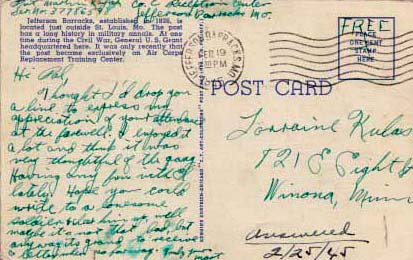 Co. Reception Center
Jefferson Barracks Mo.
Jefferson Barracks, established in 1826, is
located just outside St. Louis, Mo. The post
has a long history in military annals. At one
time during the Civil War, General U. S. Grant
headquartered here. It was only recently that
the post became exclusively an Air Corps
Replacement Training Center.
JEFFERSON BARRACKS, MO.
FEB 19
PM
1945
FREE
PLACE
ONE CENT
STAMP
HERE
POST CARD
Thought I'd drop you
a line to express my
appreciation of your attendance
at the farewell. I enjoyed it
a lot and think it was
very thoughtful of the gang
Having any fun
lately. Hope you could
write to a lonesome
soldier & cheer him up well
maybe it's not that bad, but
anyway its grand to receive
a letter
Lorraine Kulas
721 E Eight
Winona, Minn
Answered
2/25/45